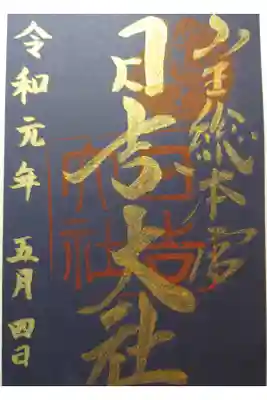 山王総本宮
日吉大社
令和元年 五月 四日
日吉大社